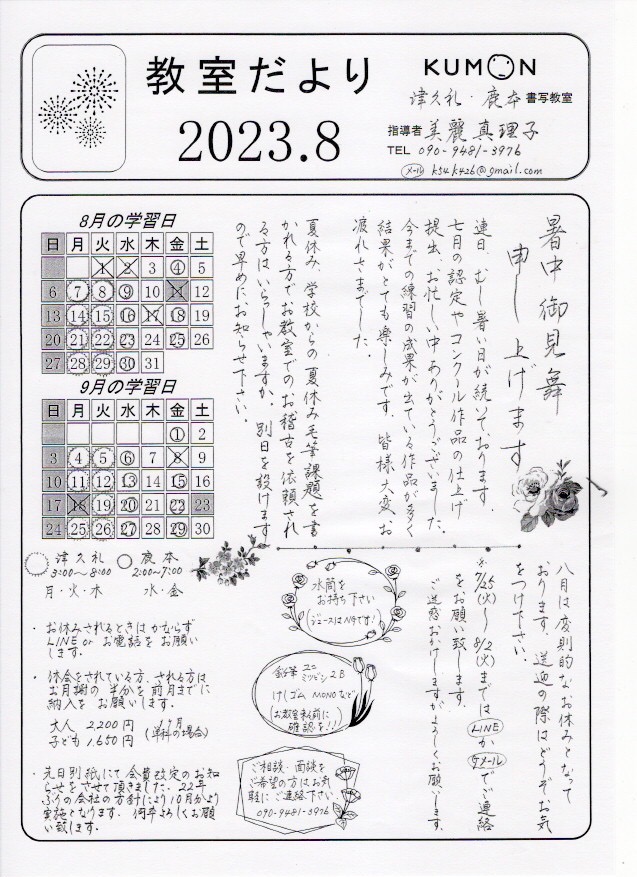 教室だより
2023.8
KUMON
津久礼・鹿本 書写教室
指導者 美麗 真理子
TEL 090-9481-3976
メール k54k426@gmail.com
暑中御見舞
申し上げます
連日、むし暑い日が続いております。
七月の認定やコンクール作品の仕上げ
提出、お忙しい中ありがとうございました。
今までの練習の成果が出ている作品が多く
結果がとても楽しみです。皆様大変、お
疲れさまでした。
夏休み、学校からの夏休み毛筆課題を書
かれる方でお教室でのお稽古を依頼され
る方はいらっしゃいますか。別日を設けます
ので早めにお知らせ下さい。
8月の学習日
日 月 火 水 木 金 土
1 2 3 4 5
6 7 8 9 10 11 12
13 14 15 16 17 18 19
20 21 22 23 24 25 26
27 28 29 30 31
9月の学習日
日 月 火 水 木 金 土
1 2
3 4 5 6 7 8 9
10 11 12 13 14 15 16
17 18 19 20 21 22 23
24 25 26 27 28 29 30
津久礼
3:00〜8:00
月・火・木
鹿本
2:00〜7:00
水・金
・お休みされるときはかならず
LINE or お電話をお願い
します。
・休会をされている方、される方は
お月謝の半分を前月までに
納入をお願いします。
大人 2,200円
子ども 1,650円
1ヶ月
(単科の場合)
・先日別紙にて会費改定のお知
らせをさせて頂きました。22年
ぶりの会社の方針により10月分より
実施となります。何卒よろしくお願
い致します。
八月は変則的なお休みとなって
おります。送迎の際はどうぞお気
をつけ下さい。
※7/25(火)〜8/2(水)まではLINEかGメールでご連絡
をお願い致します。
ご迷惑おかけしますがよろしくお願いします。
水筒を
お持ち下さい
(ジュースはNGです!)
鉛筆 ユニ
ミツビシ 2B
けしゴム MONOなど
(お教室来る前に
確認を!!)
ご相談・面談を
ご希望の方はお気
軽にご連絡下さい
090-9481-3976